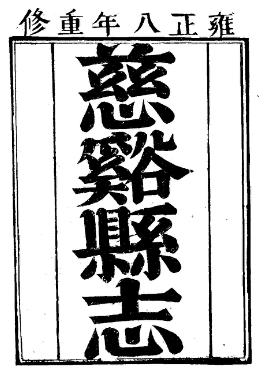 雍正八年重修
慈谿縣志